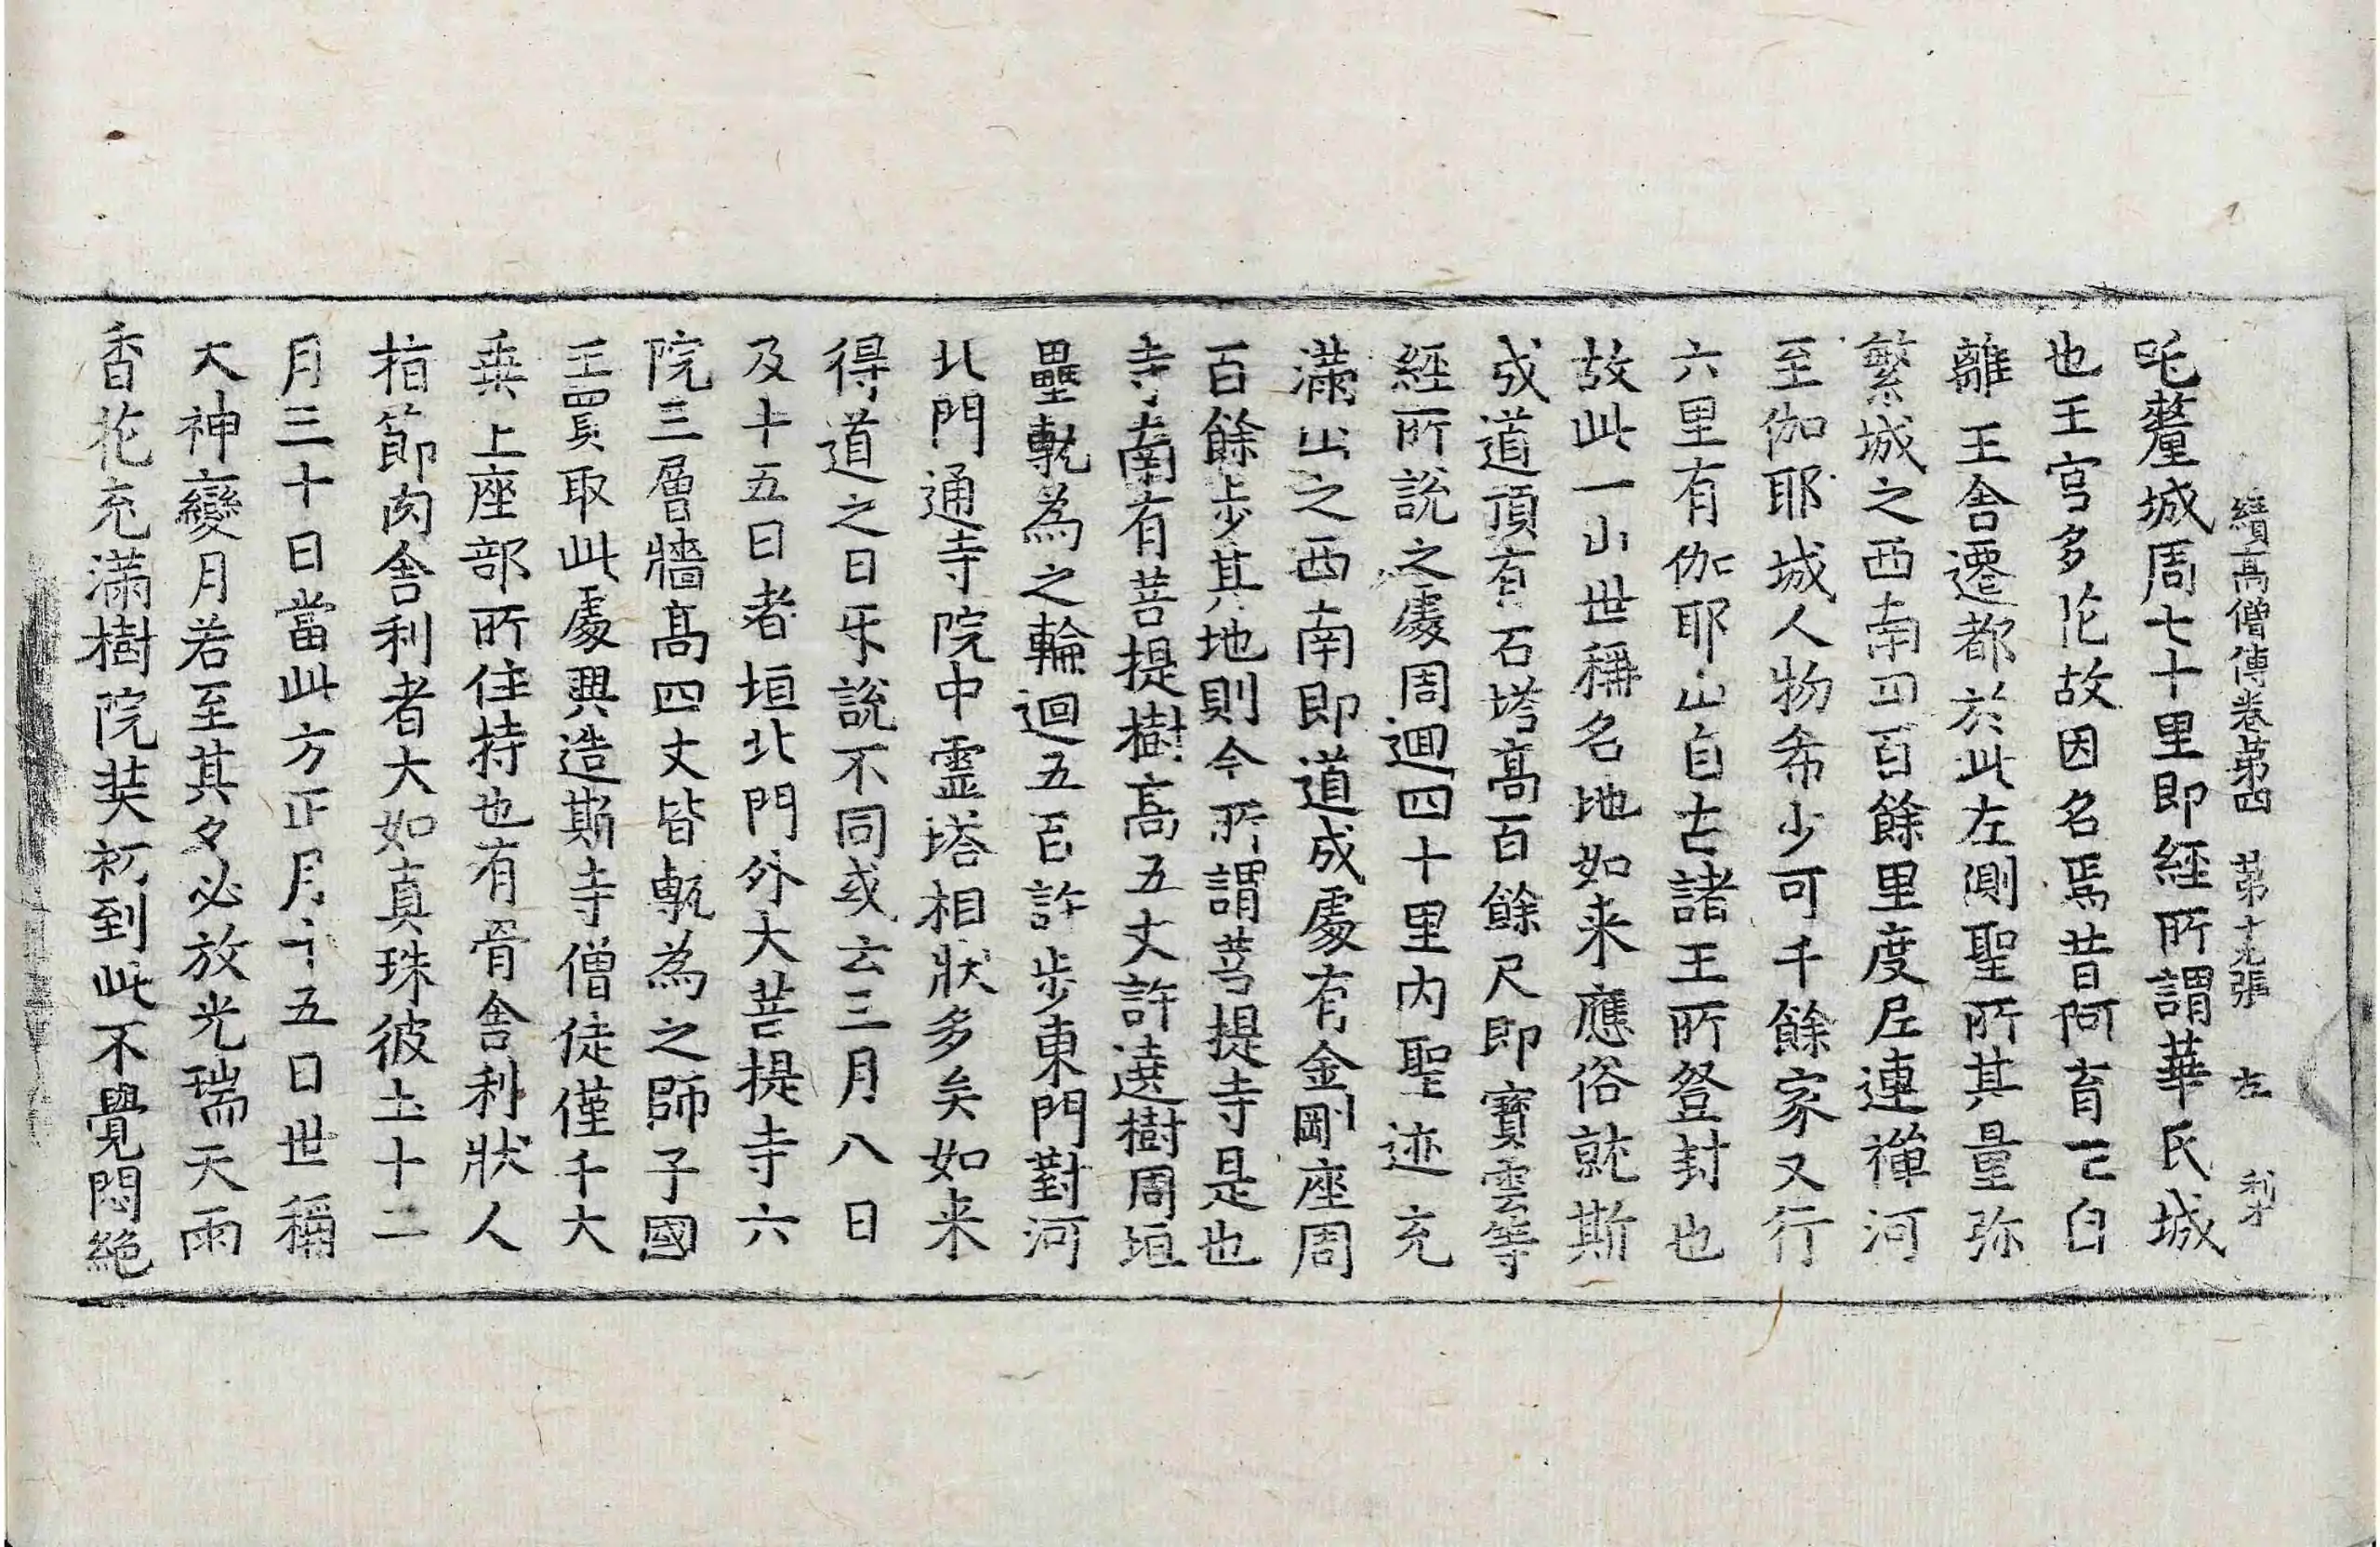 續高僧傳卷第四 第十九張 左
吒釐城周七十里即經所謂華氏城
也王宮多花故因名焉昔阿育亡臼
離王舍遷都於此左側聖所其量弥
繁城之西南四百餘里度尼連禪河
至伽耶城人物希少可千餘家又行
六里有伽耶山自古諸王所登封也
故此一山世稱名地如来應俗就斯
成道頂有石塔高百餘尺即寶雲等
經所說之處周迴四十里內聖迹充
滿山之西南即道成處有金剛座周
百餘步其地則今所謂菩提寺是也
寺南有菩提樹高五丈許遶樹周垣
壘甎為之輪迴五百許步東門對河
北門通寺院中靈塔相狀多矣如来
得道之日牙說不同或云三月八日
及十五日者垣北門外大菩提寺六
院三層牆高四丈皆甎為之師子國
王買取此處興造斯寺僧徒僅千大
乘上座部所住持也有骨舍利狀人
指節肉舍利者大如真珠彼土十二
月三十日當此方正月十五日世稱
大神變月若至其夕必放光瑞天雨
香花充滿樹院奘初到此不覺悶絕